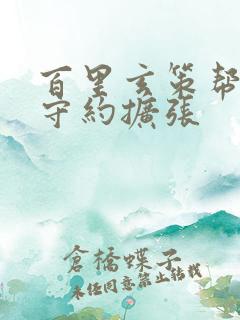 百里玄策帮
守約擴張
倉橋蝶子
未经同意禁止转载